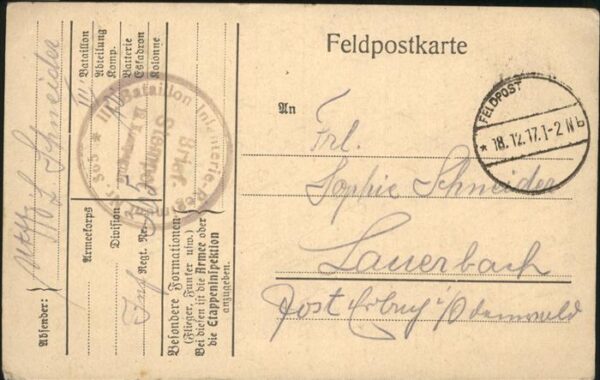 Feldpostkarte
An
Frl.
Sophie Schneider
Lauerbach
Post Erbach i/Odenwald
FELDPOST
* 18.12.17. 1-2 N b
Absender:
L Schneider
Armeekorps
Division
Inf Regt. Nr.
III Bataillon
Abteilung
Komp.
Batterie
Eskadron
Kolonne
Besondere Formationen
(Flieger, Funker usw.)
Bei diesen ist die Armee oder
die Etappeninspektion
anzugeben.
III. Bataillon Infanterie-Regiment
Brief-
Stempel